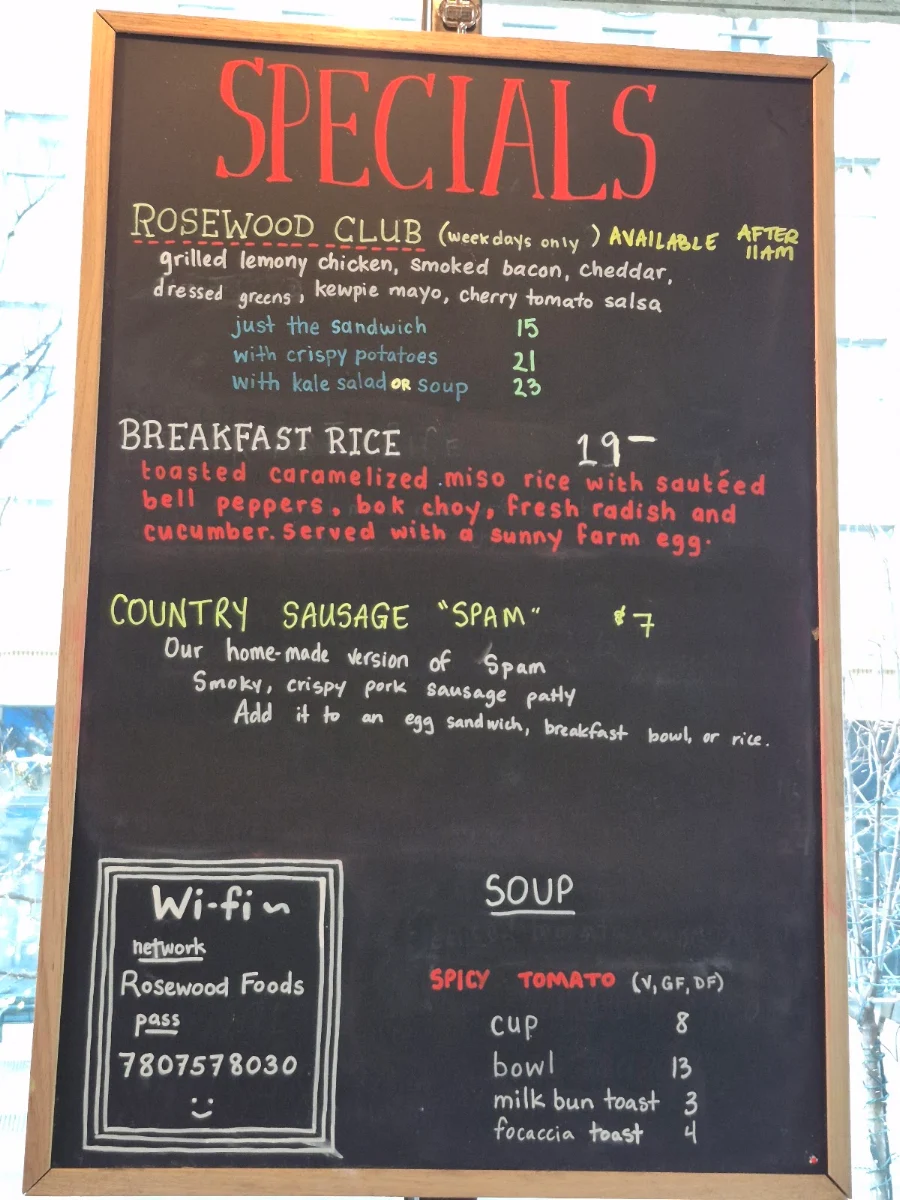 SPECIALS
ROSEWOOD CLUB (weekdays only) AVAILABLE AFTER 11AM
grilled lemony chicken, smoked bacon, cheddar,
dressed greens, kewpie mayo, cherry tomato salsa
just the sandwich 15
with crispy potatoes 21
with kale salad OR soup 23
BREAKFAST RICE 19-
toasted caramelized miso rice with sautéed
bell peppers, bok choy, fresh radish and
cucumber. Served with a sunny farm egg.
COUNTRY SAUSAGE "SPAM" $7
Our home-made version of Spam
Smoky, crispy pork sausage patty
Add it to an egg sandwich, breakfast bowl, or rice.
Wi-fi ~
network
Rosewood Foods
pass
7807578030
SOUP
SPICY TOMATO (V, GF, DF)
cup 8
bowl 13
milk bun toast 3
focaccia toast 4